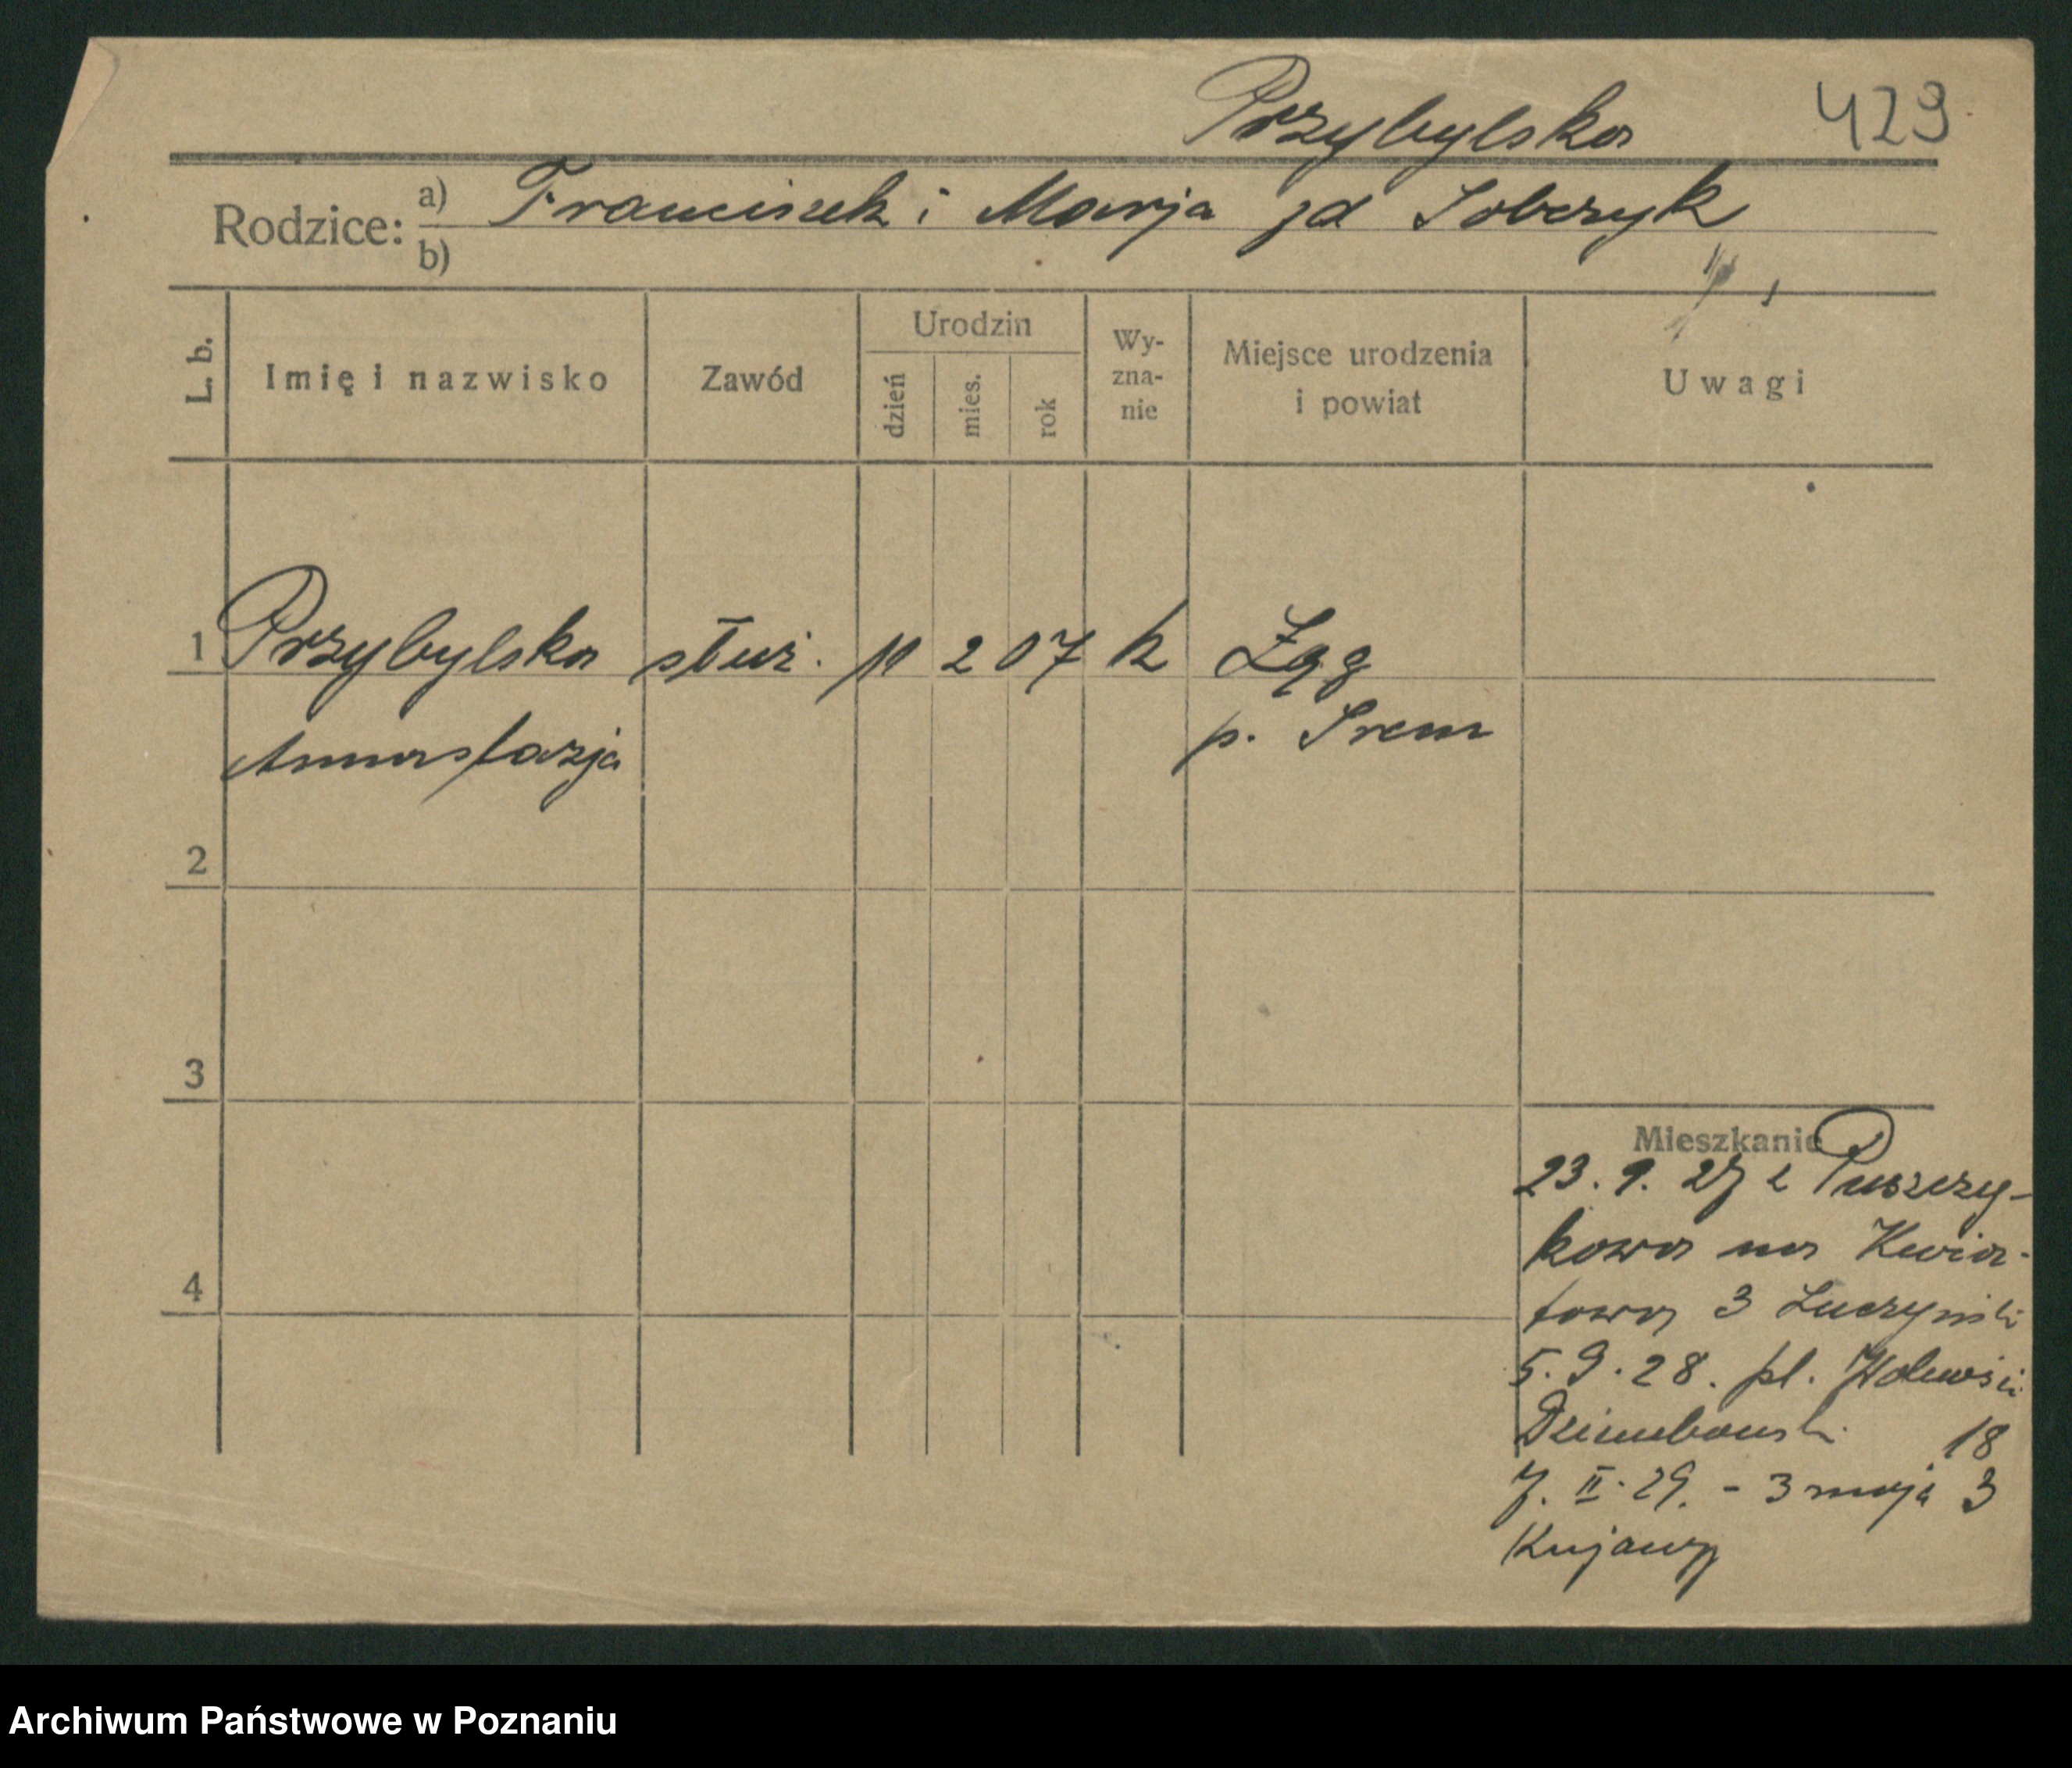 Przybylska 429
Rodzice: a) Franciszek i Marja zd Sobczyk
b)
L. b. Imię i nazwisko Zawód Urodzin dzień mies. rok Wy-zna-nie Miejsce urodzenia i powiat Uwagi
1 Przybylska służ. 11 2 07 k Żąg
Annastazja p. Srem
2
3
Mieszkanie
23. 9. 27 z Puszczy-
kowa na Kwia-
4
towa 3 Luczyński
5. 9. 28. pl.
18
7. II. 29. - 3 maja 3
Kujawy
Archiwum Państwowe w Poznaniu